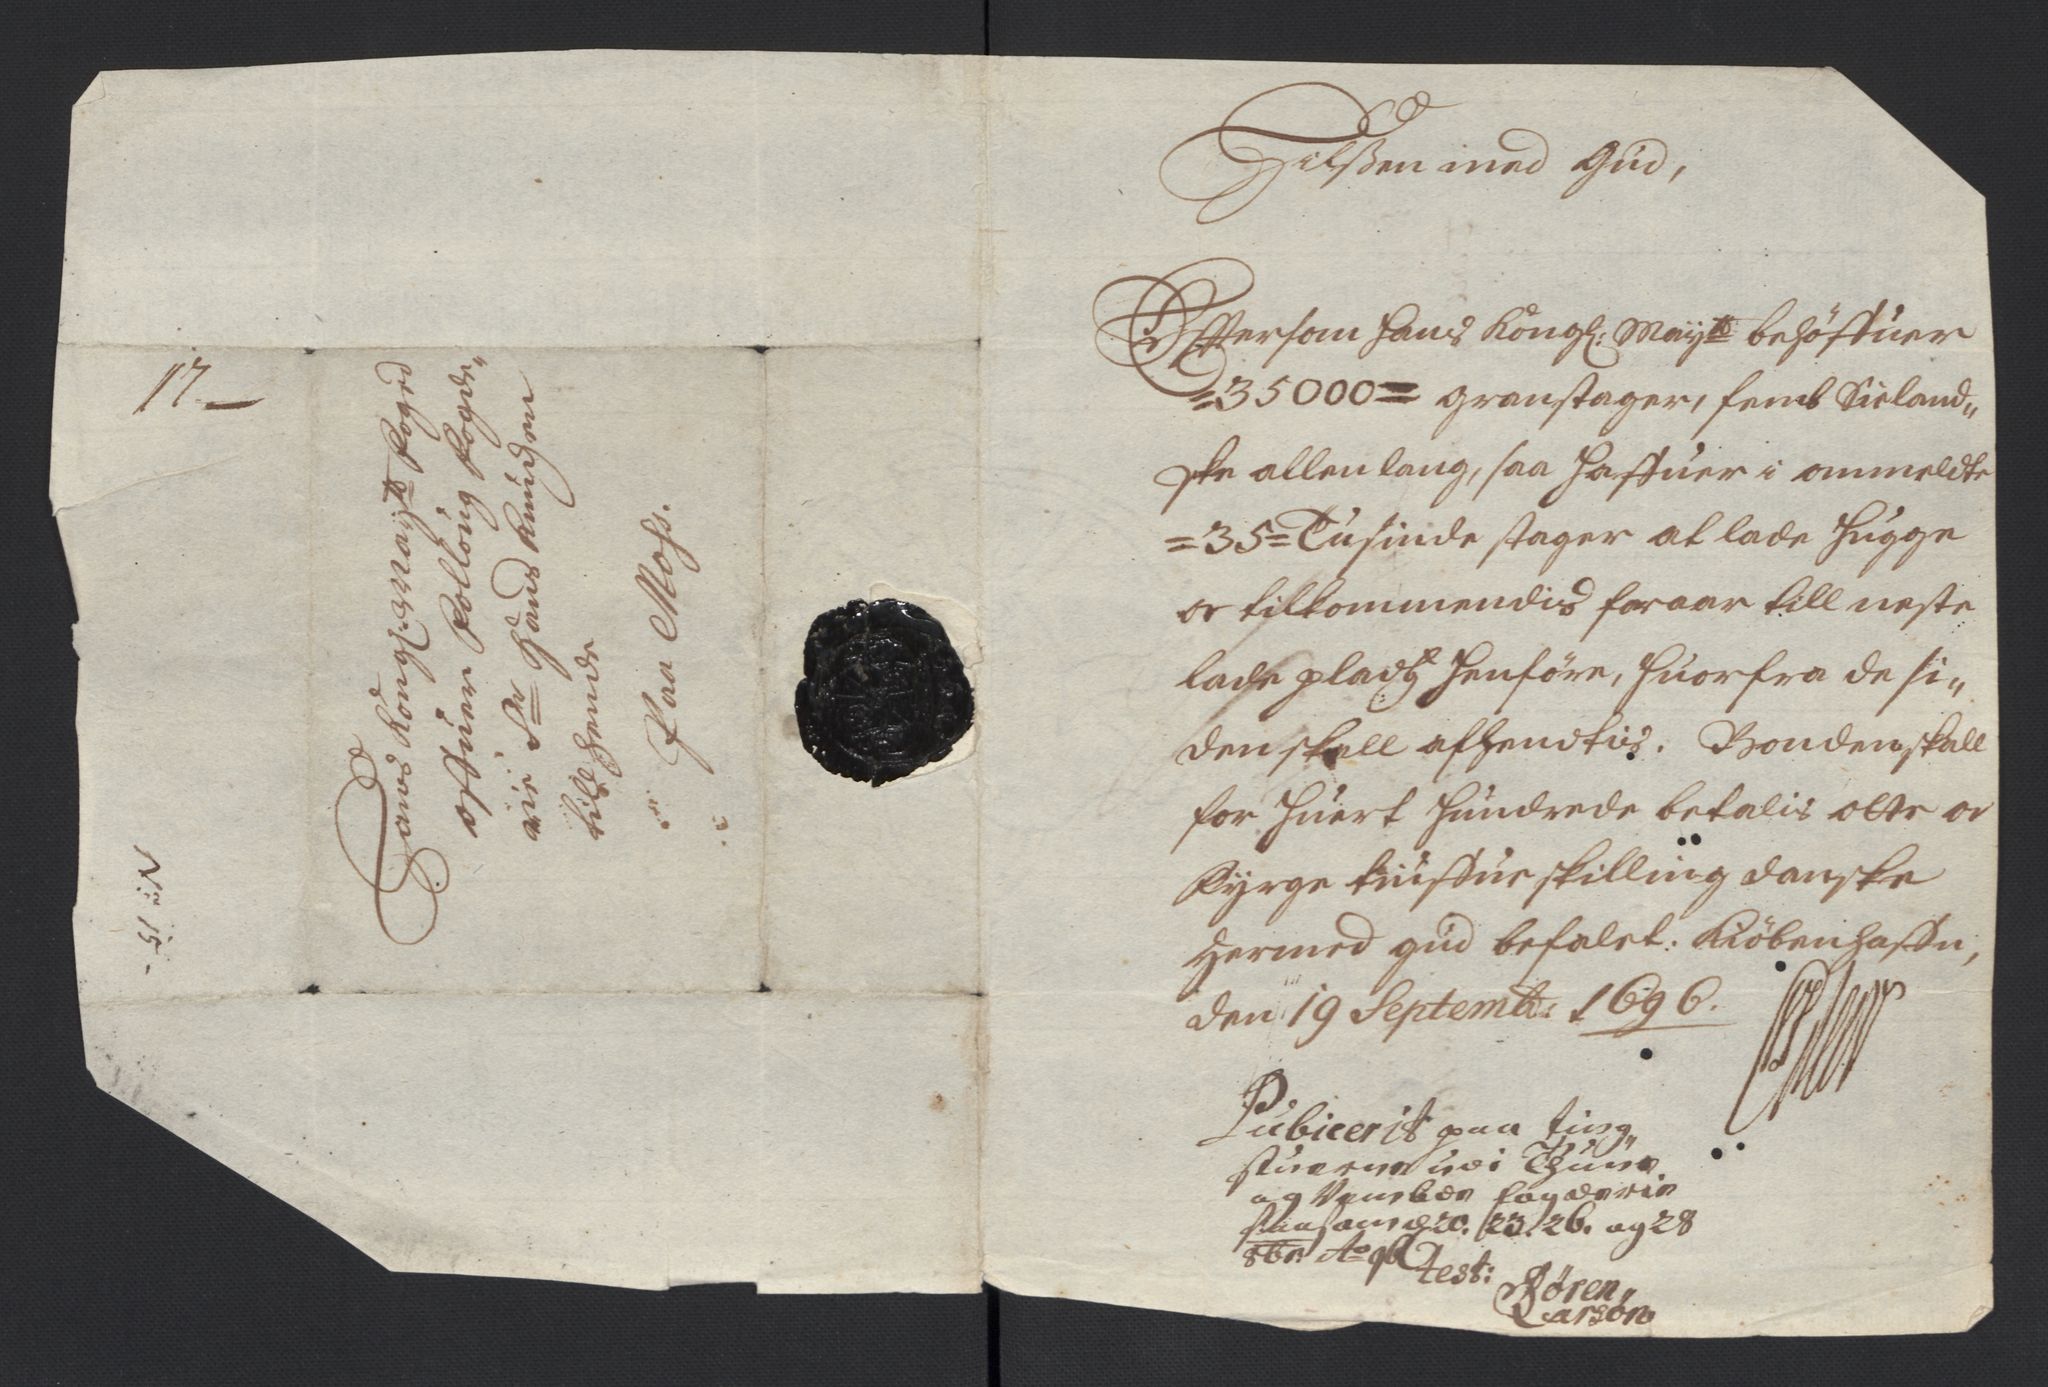 17 —
No: 15.
Hans Kongl: Mayts Foged
offuer Folloug Fogde„
rie Sr Hans Knudsen
till hende
Paa Moss.
Hilssen med Gud,
Eftersom Hans Kongl: Mayts behöffuer
=35000= granstager, femb Sieland„
ske allen lang, saa haffuer i ommeldte
=35= Tusinde stager at lade hugge
oc tilkommendis foraar till neste
lade pladtz henföre, huorfra de si„
den skall afhendtis. Bonden skall
for huert hundrede betalis otte oc
Fyrge tiuffue skilling danske
Hermed gud befalet. Kiöbenhaffn,
den 19 Septembr: 1696.
Publicerit paa ting
stuerne udi Thune
og Vemb fogderie
20. 23. 26. og 28
8br: Ao 96
Test:
Sören
Larson